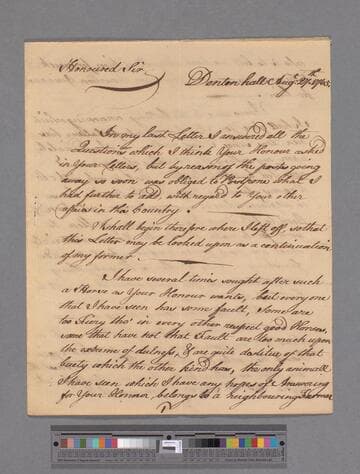 Honoured Sir
Denton hall Augt. 27th. 1763.
In my last Letter I answered all the
Questions which I think Your Honour asked
in Your Letters, but by reason of the post going
away so soon was obliged to Postpone what I
had further to add with regard to Your other
affairs in this Country.
I shall begin therefore where I left off, so that
this Letter may be looked upon as a continuation
of my former.
I have several times sought after such
a Horse as Your Honour wants, but every one
that I have seen has some fault, Some are
too Firey tho' in every other respect good Horses,
some that have not that Fault are too much upon
the extreme of dulness, & are quite destitue of that
beuty which the other kind has, the only animall
I have seen which I have any hopes of Answering
for Your Honour belongs to a neighbouring Farmer